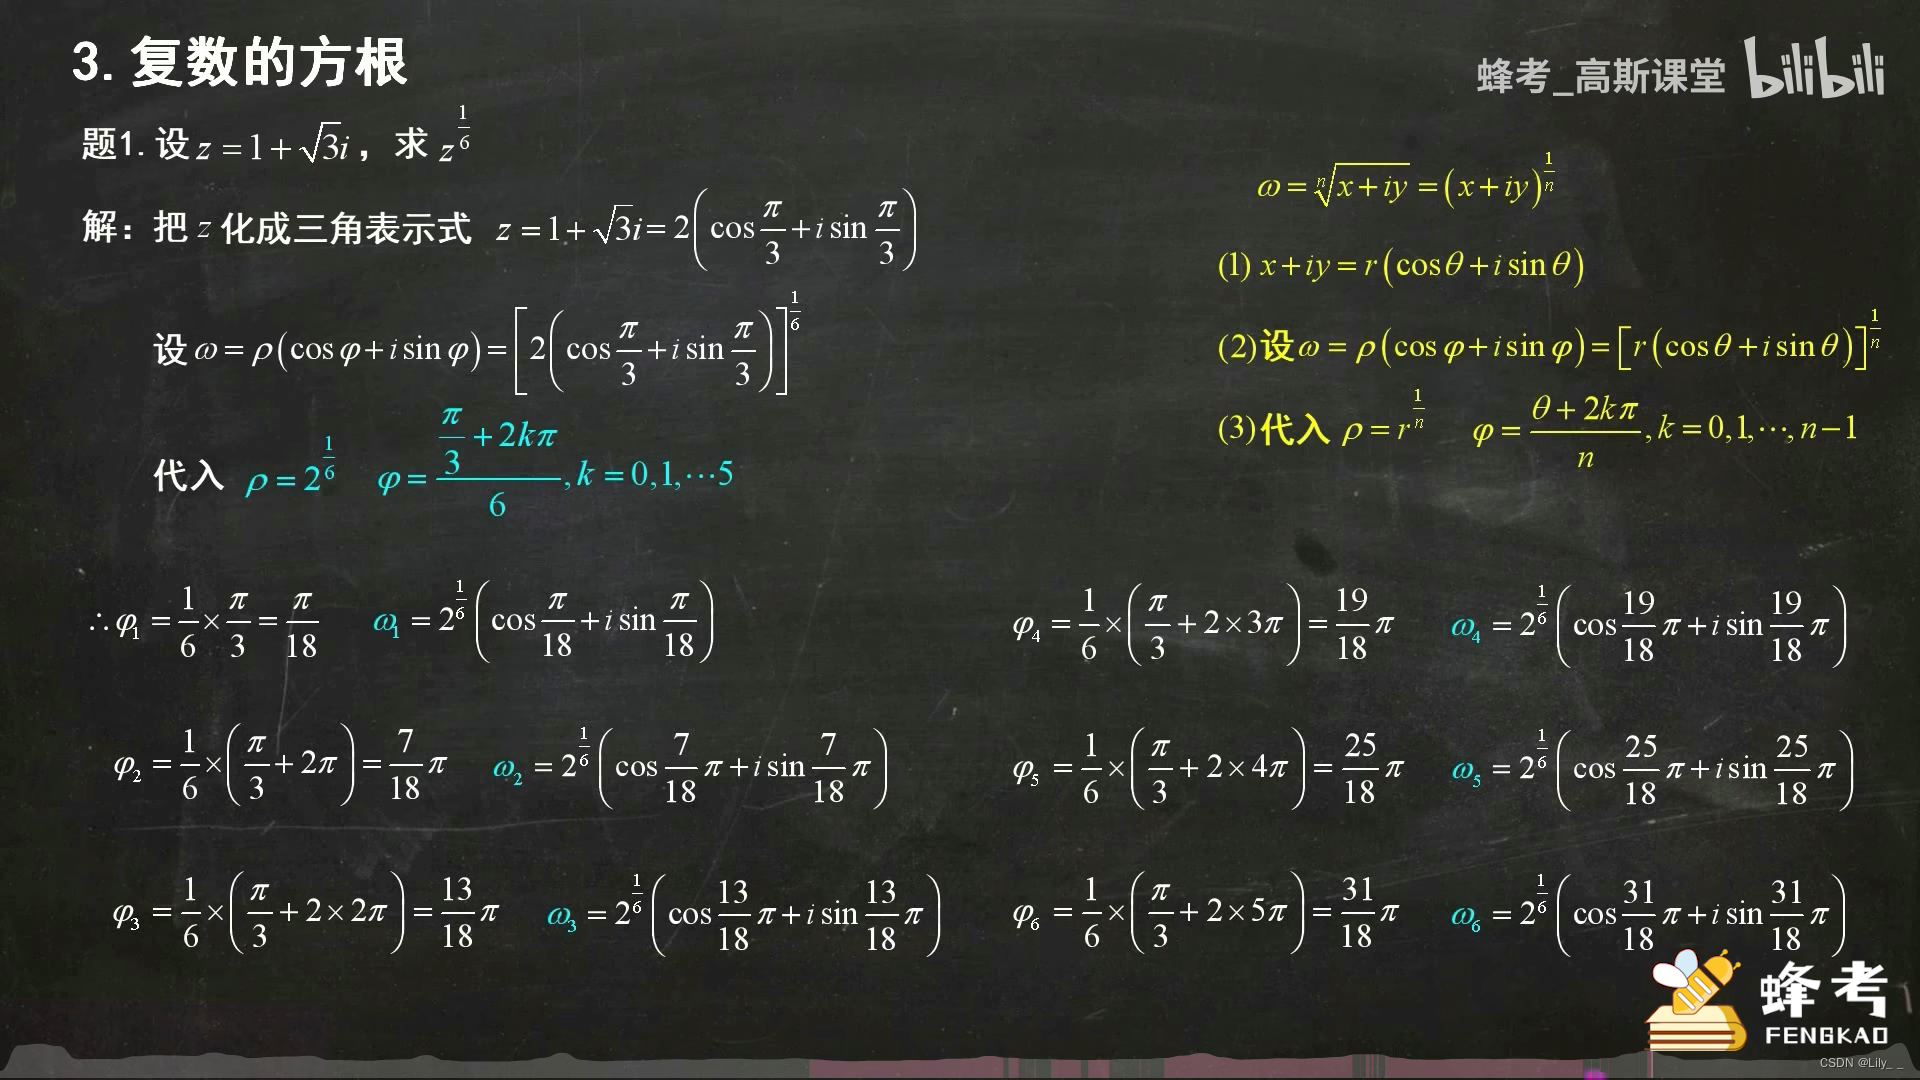 3.复数的方根
蜂考_高斯课堂 bilibili
题1.设 z = 1 + √3i ，求 z^(1/6)
解：把 z 化成三角表示式 z = 1 + √3i = 2(cos π/3 + i sin π/3)
设 ω = ρ(cos φ + i sin φ) = [2(cos π/3 + i sin π/3)]^(1/6)
代入 ρ = 2^(1/6) φ = (π/3 + 2kπ)/6, k = 0,1,⋯5
ω = ⁿ√(x + iy) = (x + iy)^(1/n)
(1) x + iy = r(cos θ + i sin θ)
(2)设 ω = ρ(cos φ + i sin φ) = [r(cos θ + i sin θ)]^(1/n)
(3)代入 ρ = r^(1/n) φ = (θ + 2kπ)/n, k = 0,1,⋯, n−1
∴ φ₁ = 1/6 × π/3 = π/18 ω₁ = 2^(1/6) (cos π/18 + i sin π/18)
φ₂ = 1/6 × (π/3 + 2π) = 7/18 π ω₂ = 2^(1/6) (cos 7/18 π + i sin 7/18 π)
φ₃ = 1/6 × (π/3 + 2×2π) = 13/18 π ω₃ = 2^(1/6) (cos 13/18 π + i sin 13/18 π)
φ₄ = 1/6 × (π/3 + 2×3π) = 19/18 π ω₄ = 2^(1/6) (cos 19/18 π + i sin 19/18 π)
φ₅ = 1/6 × (π/3 + 2×4π) = 25/18 π ω₅ = 2^(1/6) (cos 25/18 π + i sin 25/18 π)
φ₆ = 1/6 × (π/3 + 2×5π) = 31/18 π ω₆ = 2^(1/6) (cos 31/18 π + i sin 31/18 π)
蜂考
FENGKAO
CSDN @Lily_ _